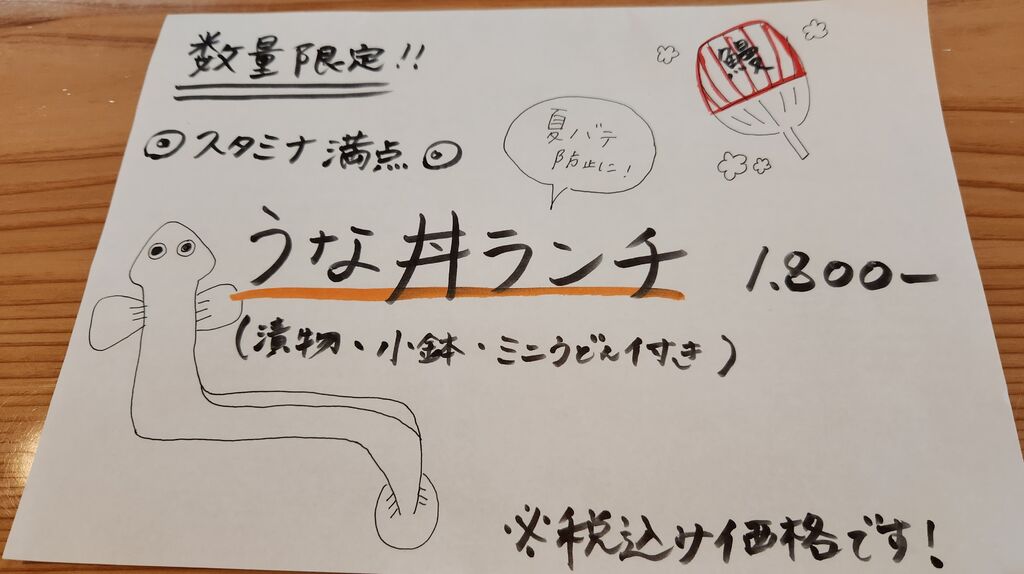 数量限定!!
鰻
◎スタミナ満点◎
夏バテ
防止に!
うな丼ランチ 1.800-
(漬物・小鉢・ミニうどん付き)
※税込サ価格です!